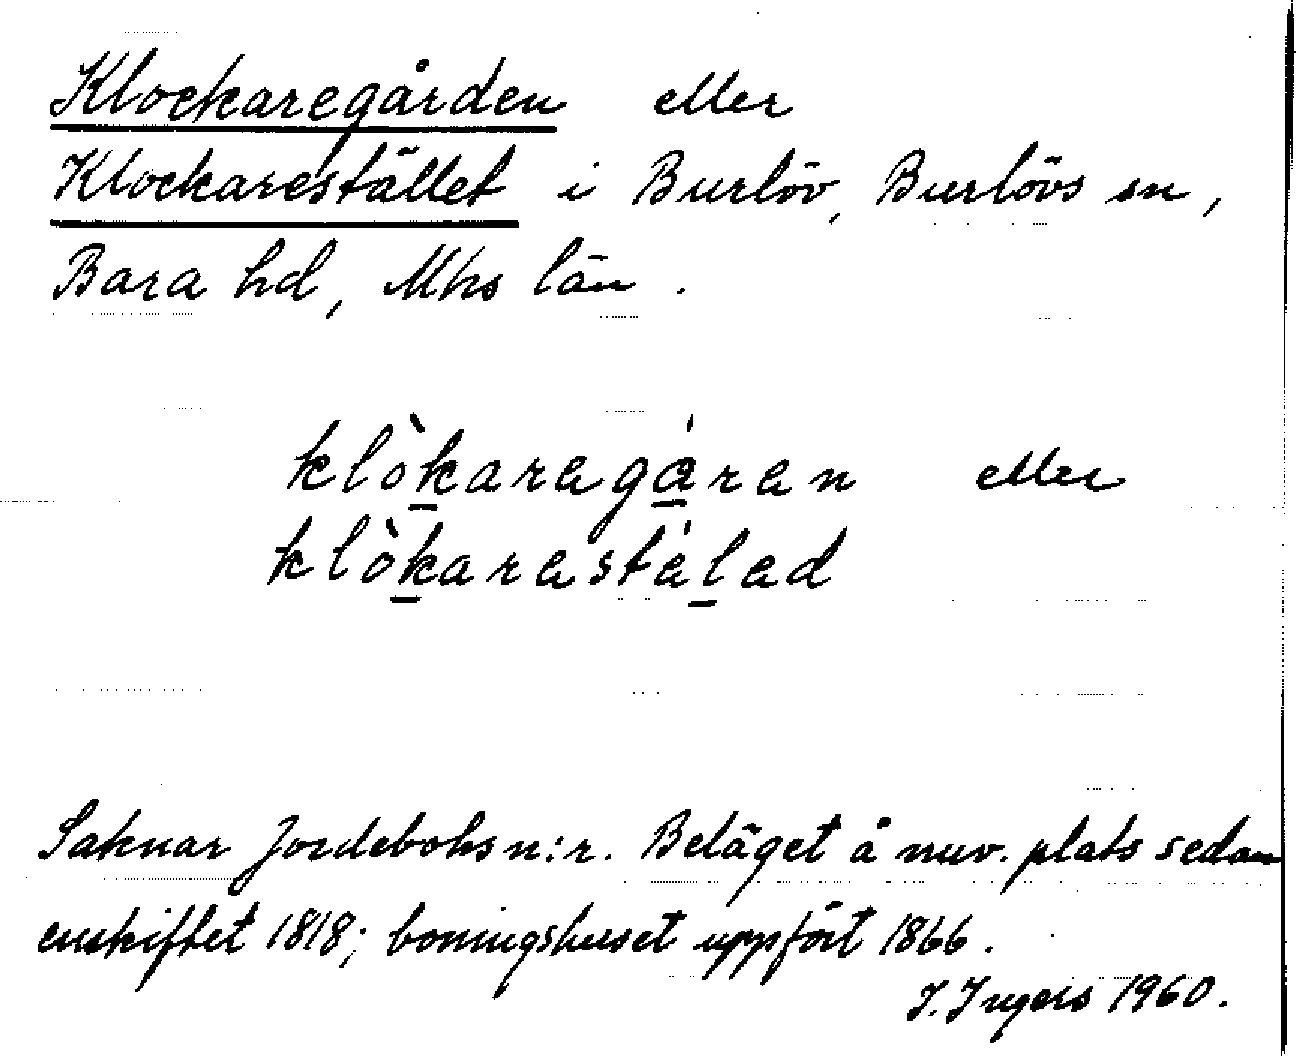 Klockaregården eller
Klockarestället i Burlöv, Burlövs sn,
Bara hd, Mhs län.
klòkaragǻran eller
klòkarastálad
Saknar Jordeboksn:r. Beläget å nuv. plats sedan
enskiftet 1818; boningshuset uppfört 1866.
I. Ingers 1960.